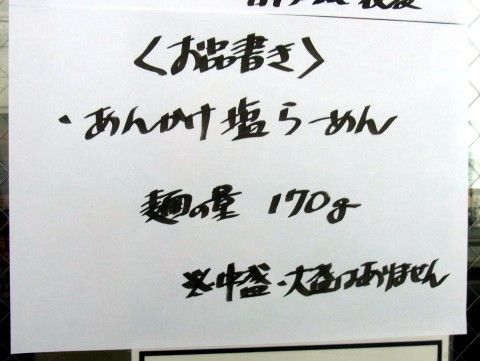 〈お品書き〉
・あんかけ塩らーめん
麺の量 170g
※中盛・大盛はありません